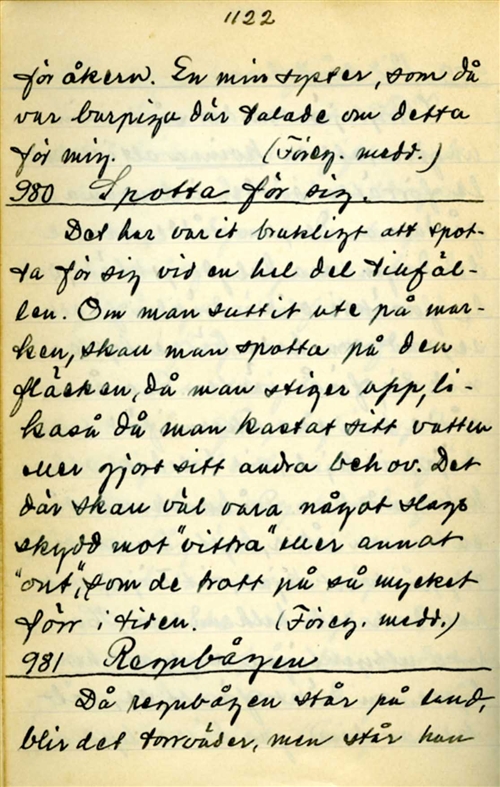 1122
för åkern. En min syster, som då
var barpiga där talade om detta
för mig. (Föreg. medd.)
980 Spotta för sig.
Det har varit brukligt att spot-
ta för sig vid en hel del tillfäl-
len. Om man suttit ute på mar-
ken, skall man spotta på den
fläcken, då man stiger upp, li-
kaså då man kastat sitt vatten
eller gjort sitt andra behov. Det
där skall väl vara något slags
skydd mot "vittra" eller annat
"ont", som de trott på så mycket
förr i tiden. (Föreg. medd.)
981 Regnbågen
Då regnbågen står på land,
blir det torrväder, men står han